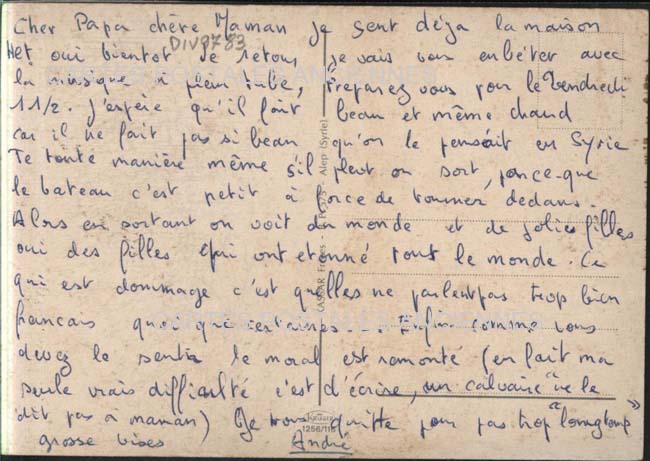 Cher Papa chère Maman je sent déja la maison
Het oui bientot je retour, je vais vous embêter avec
DIV9783
la musique à plein tube, Preparez vous pour le Vendredi
11/2. J'espère qu'il fait beau et même chaud
car il ne fait pas si beau qu'on le pensait en Syrie
Te toute manière même s'il pleut on sort, parce-que
le bateau c'est petit à force de tourner dedans.
Alors en sortant on voit du monde et de jolies filles
oui des filles qui ont étonné tout le monde. Ce
qui est dommage c'est qu'elles ne parlent pas trop bien
francais quoi que certaines.... Enfin comme vous
devez le sentir le moral est remonté (en fait ma
seule vrais difficulté c'est d'écrire, un calvaire "ne le
dit pas à maman) Je vous quitte pour pas trop "longtemps"
grosse bises André
Alep (Syrie)
1256/118
CARTES POSTALES ANCIENNES
CARTES POSTALES ANCIENNES